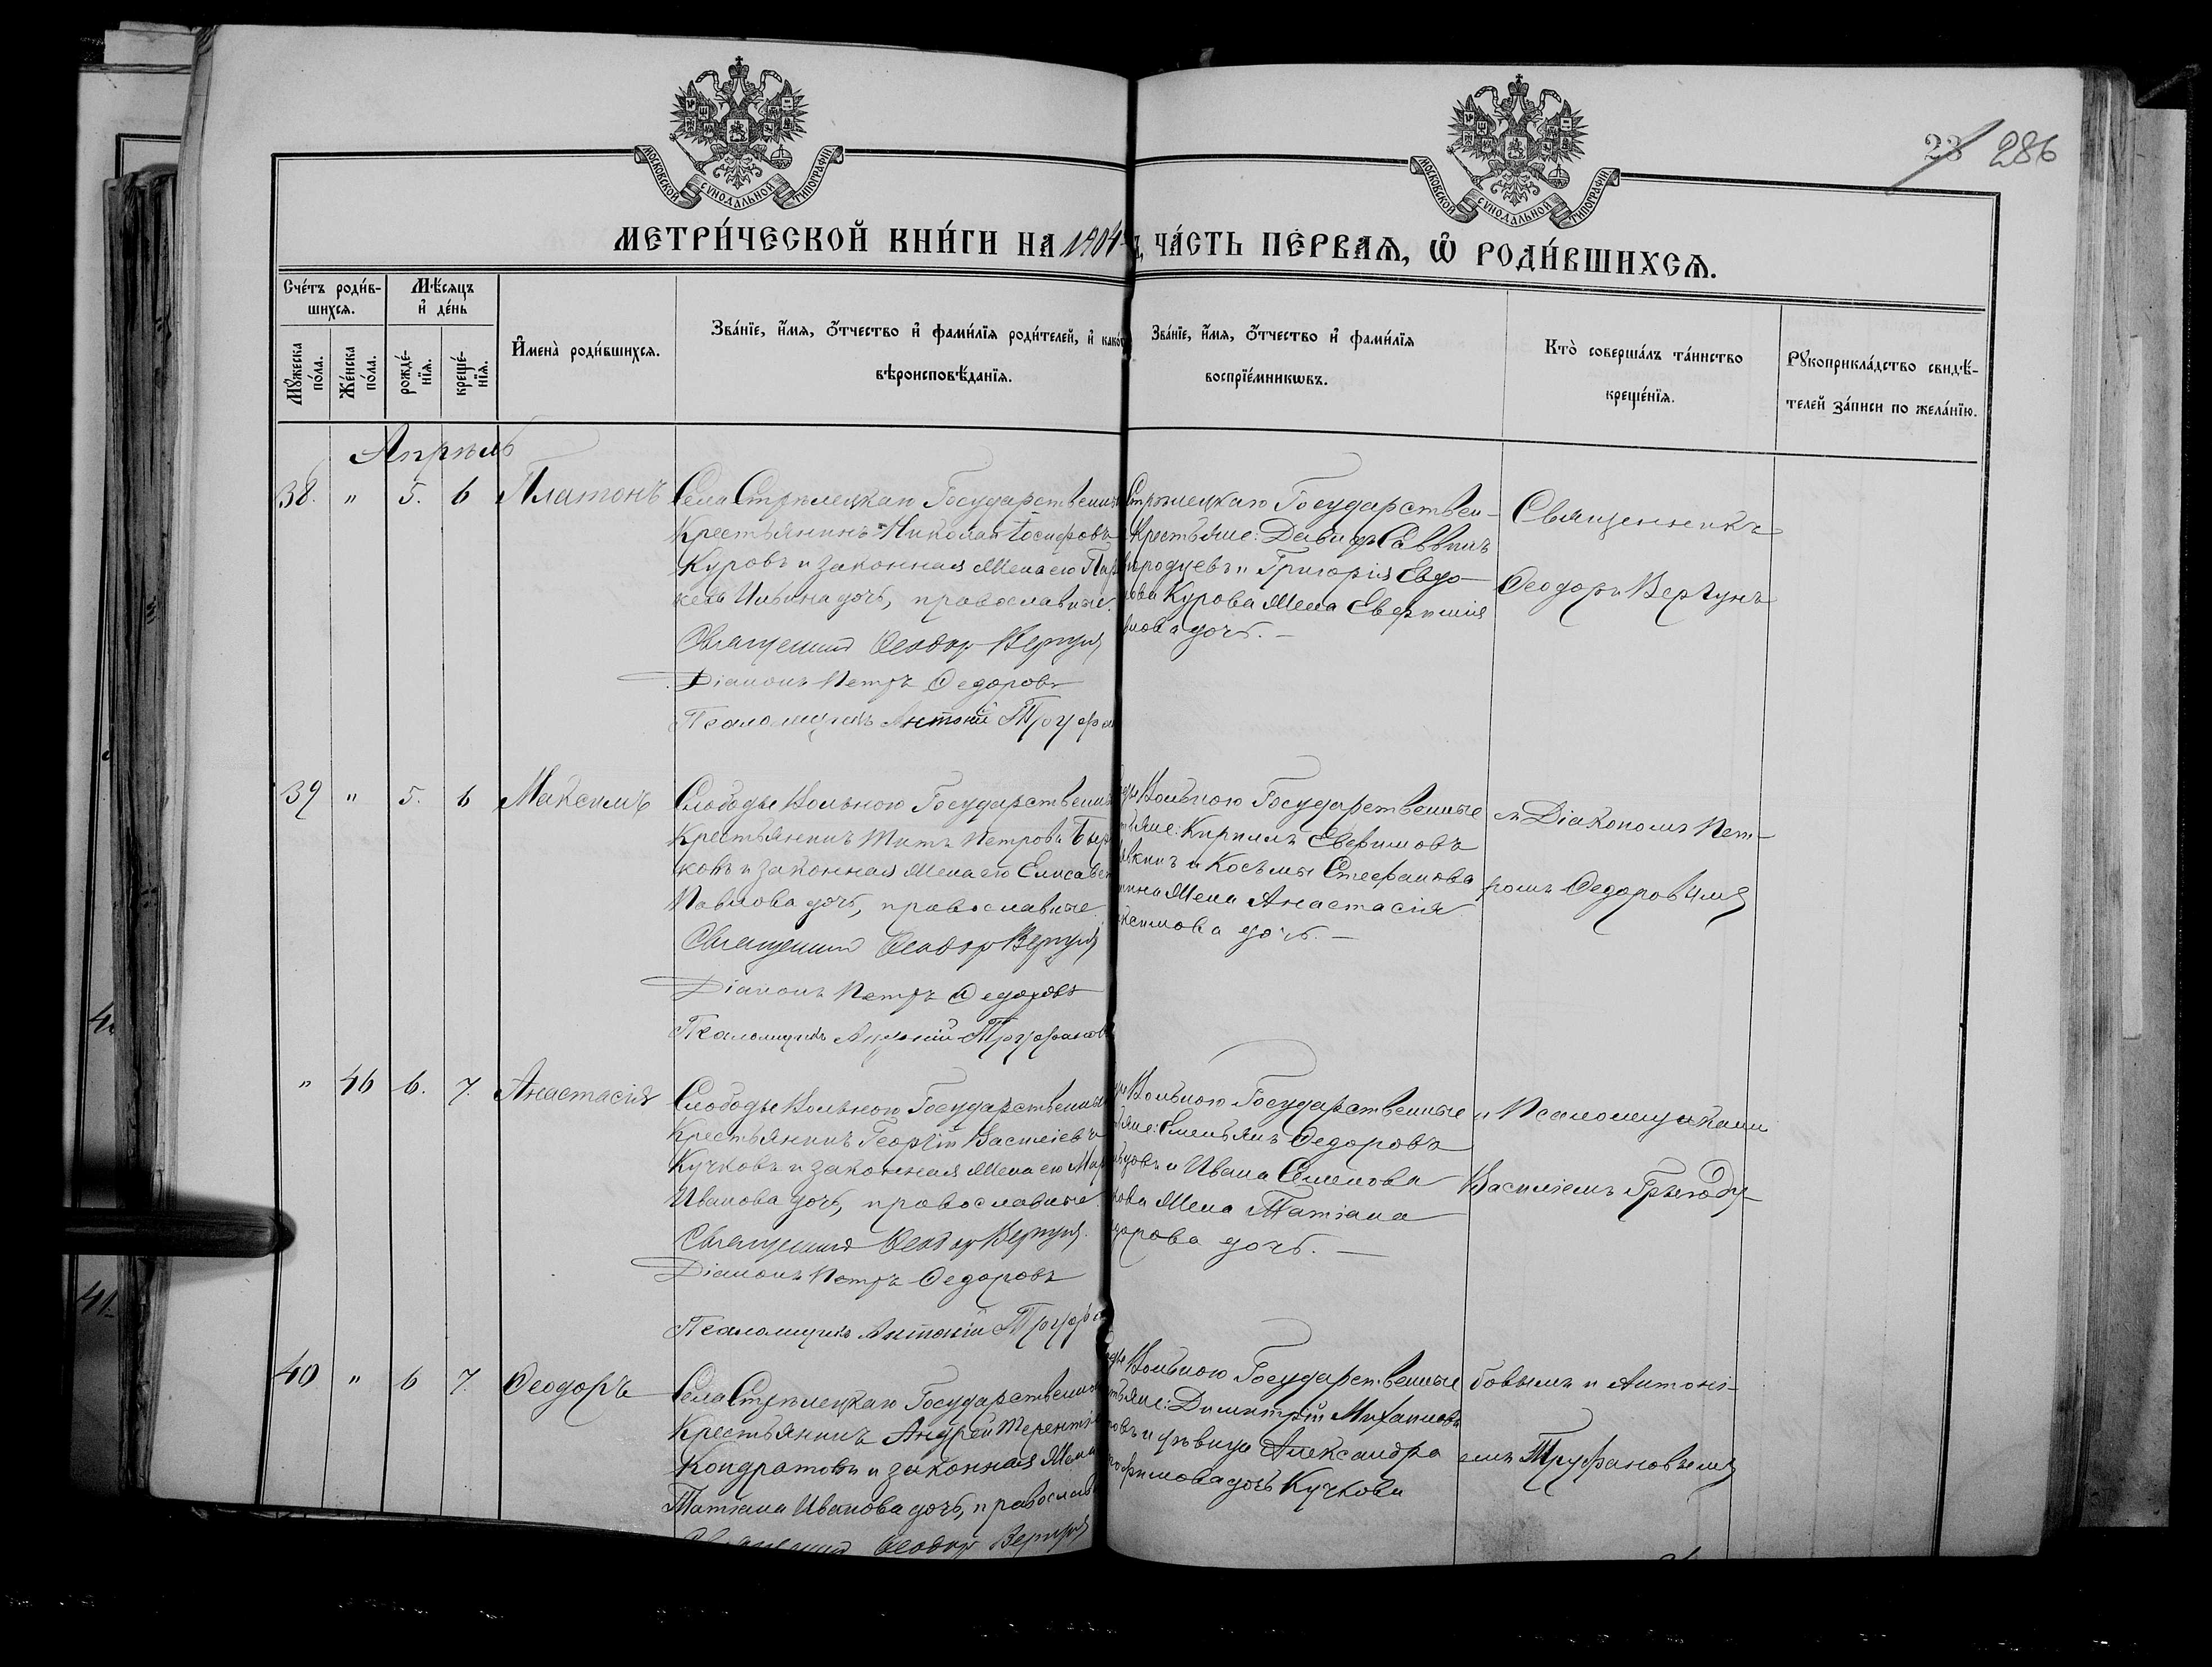 МОСКОВСКОЙ СѴНОДАЛЬНОЙ ТИПОГРАФІИ
МОСКОВСКОЙ СѴНОДАЛЬНОЙ ТИПОГРАФІИ
23 286
МЕТРИ́ЧЕСКОЙ КНИ́ГИ НА 1904 ЧА́СТЬ ПЕ́РВАѦ, Ѿ РОДИ́ВШИХСѦ.
Сче́тъ роди́в-
шихсѧ.
Мꙋ́жеска по́ла.
Же́нска по́ла.
Мѣ́сѧцъ и҆ де́нь
рожде́-нїѧ.
креще́-нїѧ.
И҆мена̀ роди́вшихсѧ.
Зва́нїе, и҆́мѧ, ѻ҆́тчество и҆ фами́лїѧ роди́телей, и҆ како́
вѣроисповѣ́данїѧ.
Зва́нїе, и҆́мѧ, ѻ҆́тчество и҆ фами́лїѧ
воспрїе́мникѡвъ.
Кто̀ соверша́лъ та́инство
креще́нїѧ.
Рꙋкоприкла́дство свидѣ́-
телей за́писи по жела́нїю.
Апрѣль
38. " 5. 6 Платонъ
Села Стрѣлецкаго Государственны
Крестьянинъ Николай Іосифовъ
Куровъ и законная жена его Пар
Ильина дочь, православные.
Священникъ Ѳеодоръ Вергунъ
Діаконъ Петръ Ѳедоровъ
Псаломщикъ Антоній Труфа
Стрѣлецкаго Государствен-
Крестьяне: Давидъ Саввинъ
Григорія Евдо-
Курова жена Евфимія
дочь. —
Священникъ
Ѳеодоръ Вергунъ
39 " 5. 6 Максимъ
Слободы Вольною Государственны
Крестьянинъ Титъ Петровъ
ковъ и законная жена его Елисавет
Павлова дочь, православные.
Священникъ Ѳеодоръ Вергунъ
Діаконъ Петръ Ѳедоровъ
Псаломщикъ Антоній Труфанов
Вольною Государственные
Кириллъ Евфимовъ
и Косьмы Стефанова
жена Анастасія
дочь. —
съ Діакономъ Пет-
ромъ Ѳедоровымъ
" 46 6. 7. Анастасія
Слободы Вольною Государственны
Крестьянинъ Георгій Василіевъ
Кучковъ и законная жена его Мар
Иванова дочь, православные.
Священникъ Ѳеодоръ Вергунъ
Діаконъ Петръ Ѳедоровъ
Псаломщикъ Антоній Труфа
Вольною Государственные
Емельянъ Ѳедоровъ
и Ивана Семенова
жена Татіана
дорова дочь. —
и Псаломщиками
Василіемъ
40 " 6 7. Ѳеодоръ
Села Стрѣлецкаго Государственны
Крестьянинъ Андрей Терентіе
Кондратовъ и законная жена
Татіана Иванова дочь, православ
Священникъ Ѳеодоръ Вергунъ
Вольною Государственные
Димитрій Михаиловъ
и дѣвица Александра
дочь Кучкова
бовымъ и Антоні-
емъ Труфановымъ